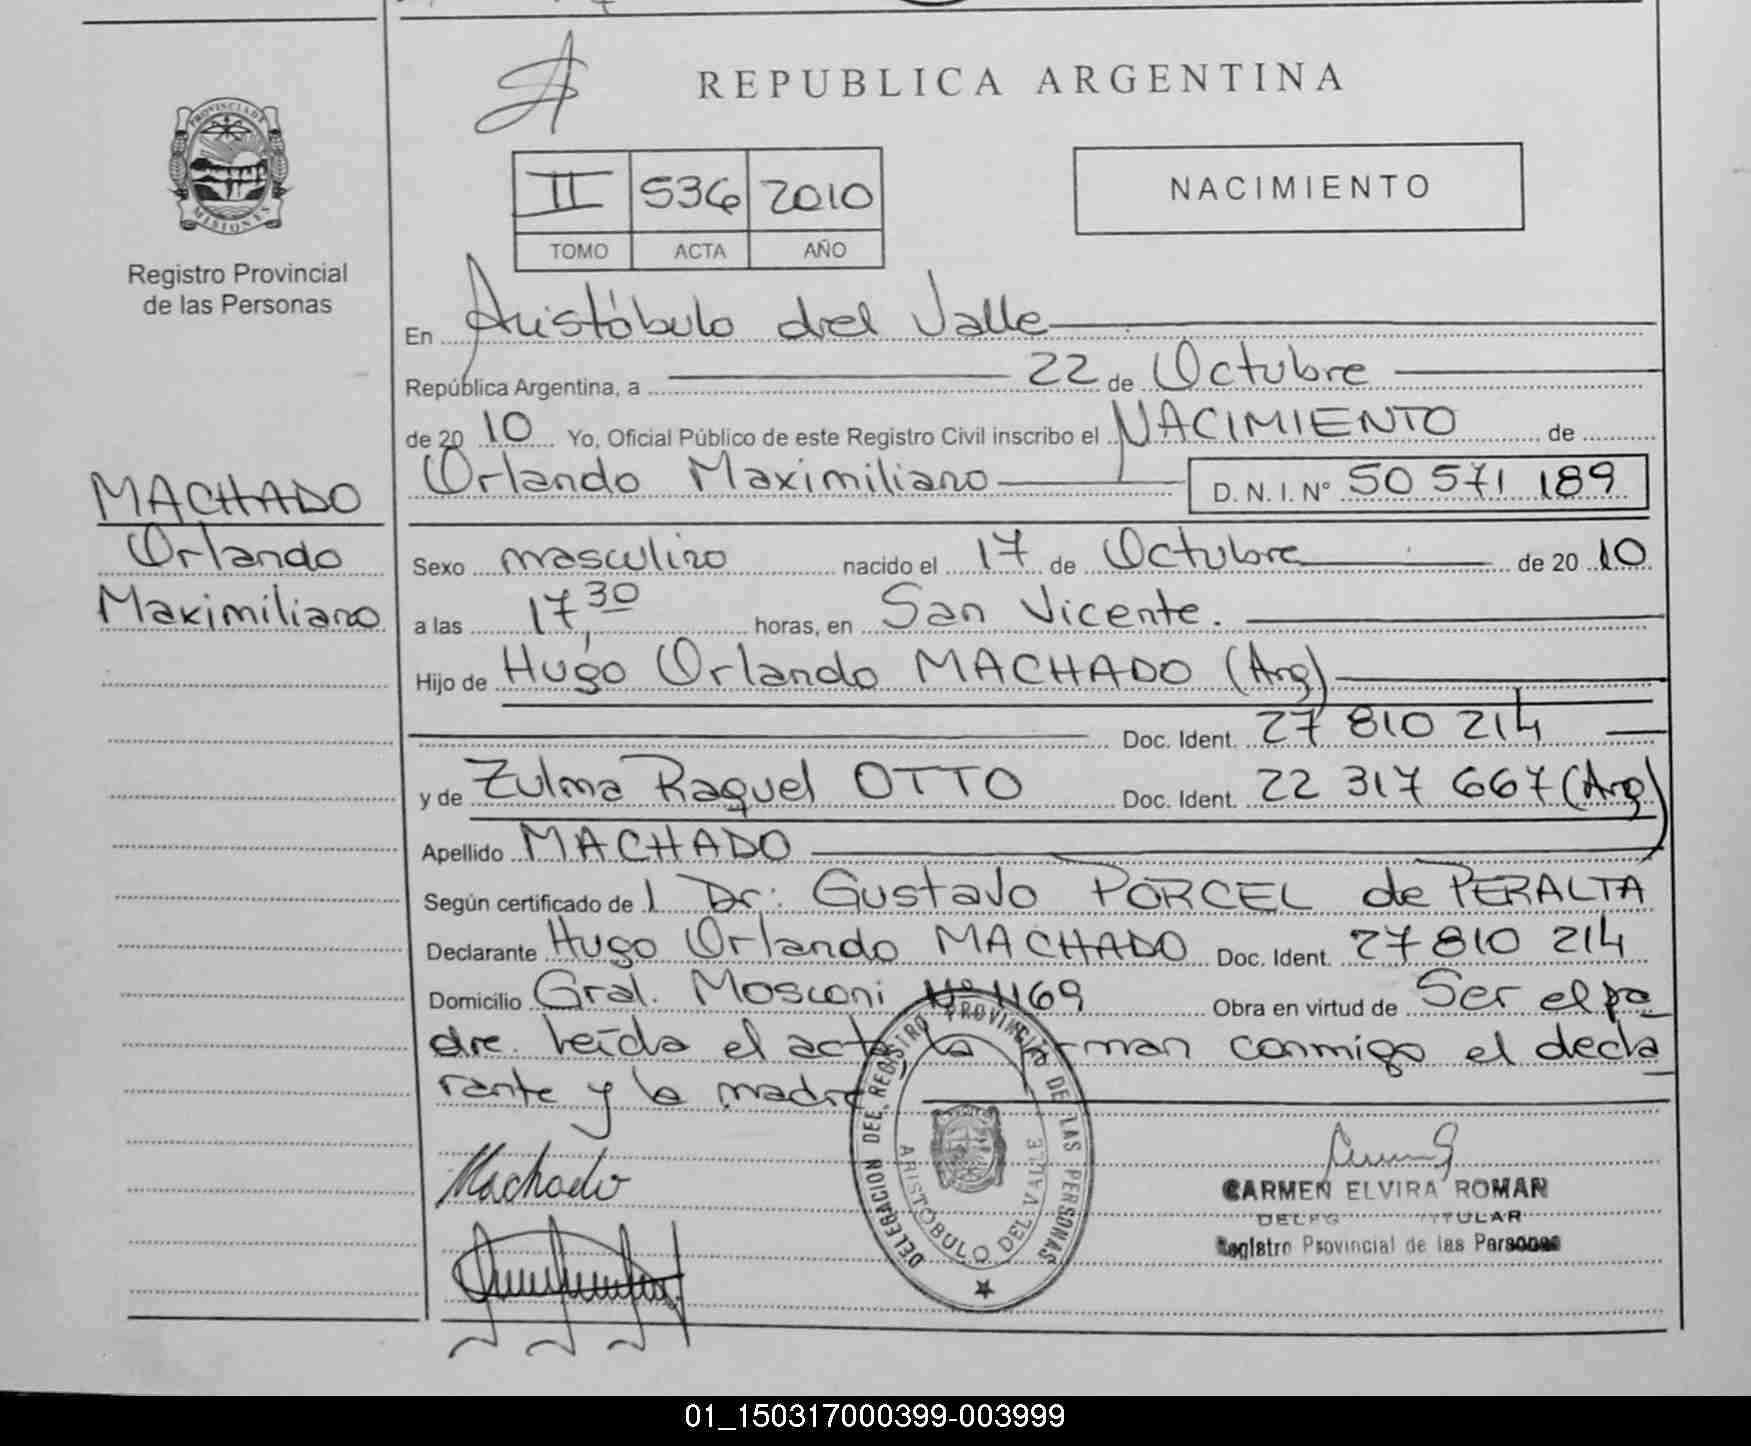 REPUBLICA ARGENTINA
PROVINCIA DE MISIONES
Registro Provincial
de las Personas
II 536 2010
TOMO ACTA AÑO
NACIMIENTO
En Aristóbulo del Valle
República Argentina, a 22 de Octubre
de 20 10 Yo, Oficial Público de este Registro Civil inscribo el NACIMIENTO de
Orlando Maximiliano D. N. I. N° 50 571 189
MACHADO
Orlando
Maximiliano
Sexo masculino nacido el 17 de Octubre de 20 10
a las 17,30 horas, en San Vicente.
Hijo de Hugo Orlando MACHADO (Arg)
Doc. Ident. 27 810 214
y de Zulma Raquel OTTO Doc. Ident. 22 317 667 (Arg)
Apellido MACHADO
Según certificado de l Dr: Gustavo PORCEL de PERALTA
Declarante Hugo Orlando MACHADO Doc. Ident. 27 810 214
Domicilio Gral. Mosconi Nº 1169 Obra en virtud de Ser el pa
dre. Leída el acta la firman conmigo el decla
rante y la madre
Machado
DELEGACION DEL REGISTRO PROVINCIAL DE LAS PERSONAS
ARISTOBULO DEL VALLE
CARMEN ELVIRA ROMAN
TITULAR
Registro Provincial de las Personas
01_150317000399-003999